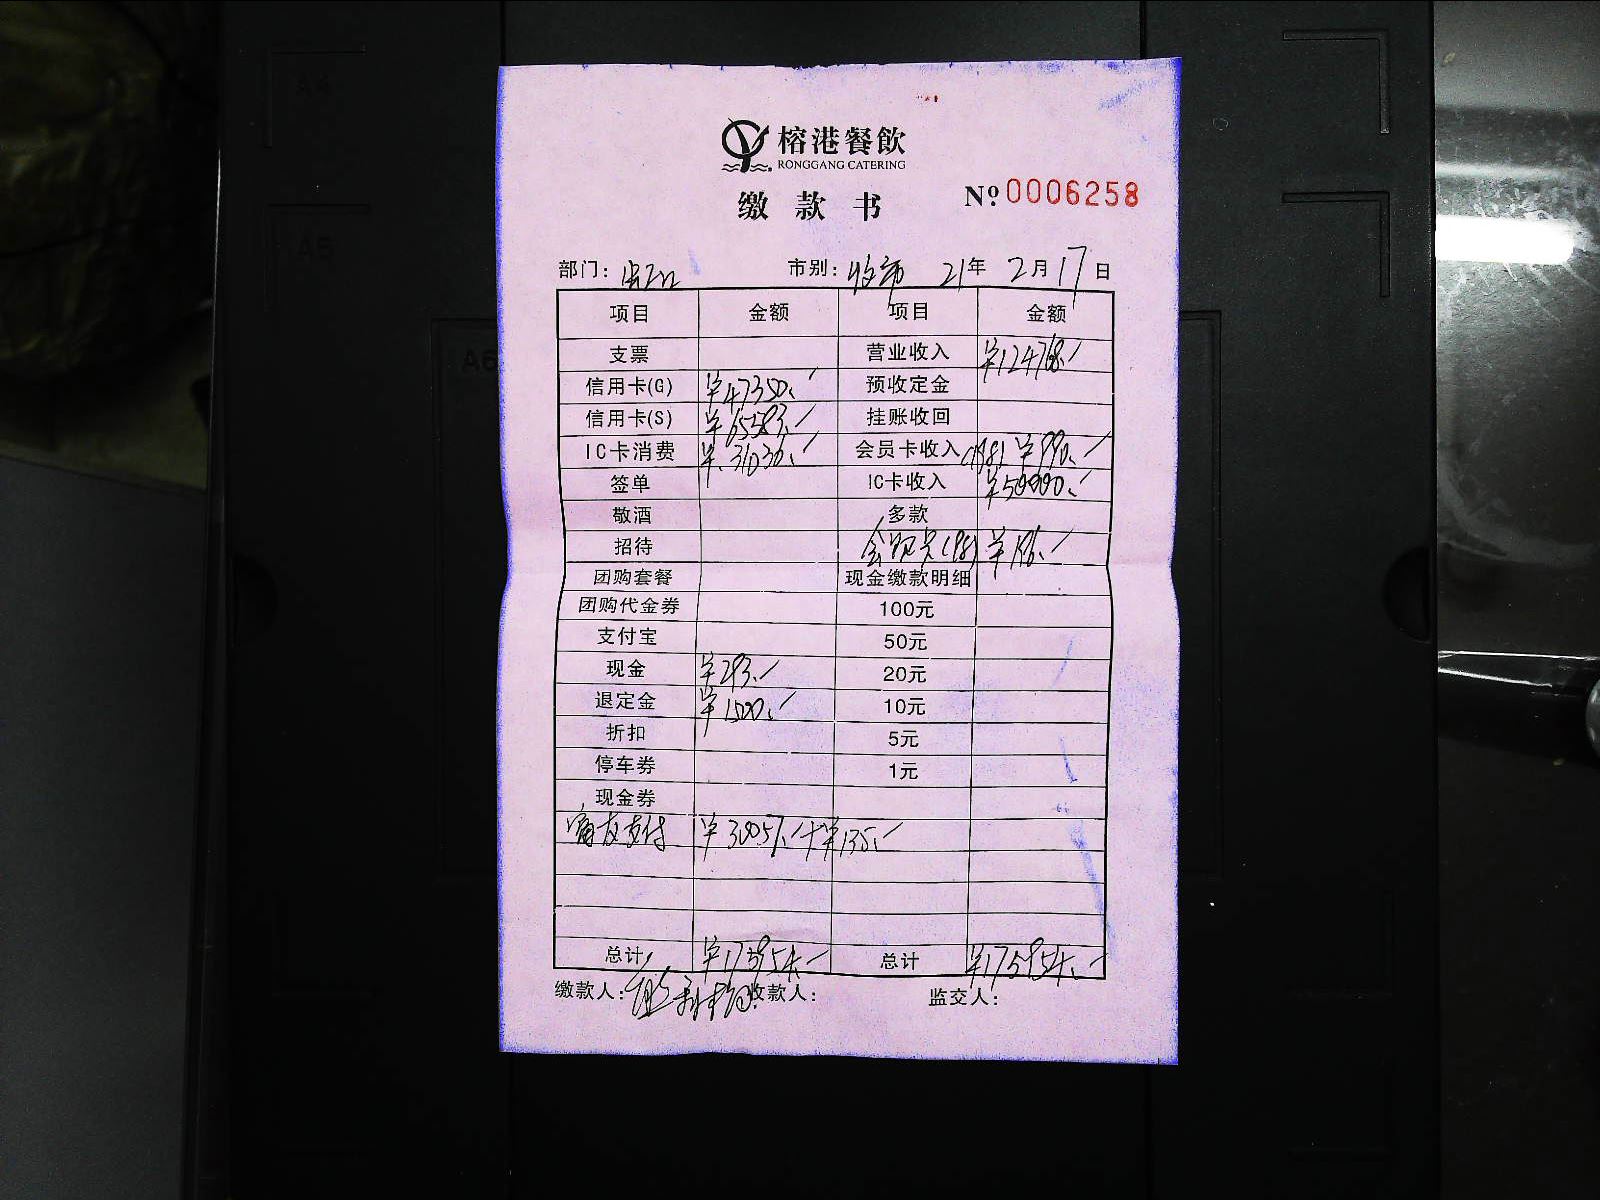 榕港餐飲
RONGGANG CATERING
缴款书
Nº 0006258
部门: 市别: 收市 21年 2月 17日
项目 金额 项目 金额
支票 营业收入 ¥124768.
信用卡(G) ¥47350. 预收定金
信用卡(S) ¥65583. 挂账收回
IC卡消费 ¥31036. 会员卡收入 (198) ¥990.
签单 IC卡收入 ¥50000.
敬酒 多款
招待 会员卡(98) ¥196.
团购套餐 现金缴款明细
团购代金券 100元
支付宝 50元
现金 ¥293. 20元
退定金 ¥1500. 10元
折扣 5元
停车券 1元
现金券
富友支付 ¥30057.+¥135.
总计 ¥175954. 总计 ¥175954.
缴款人: 收款人: 监交人: